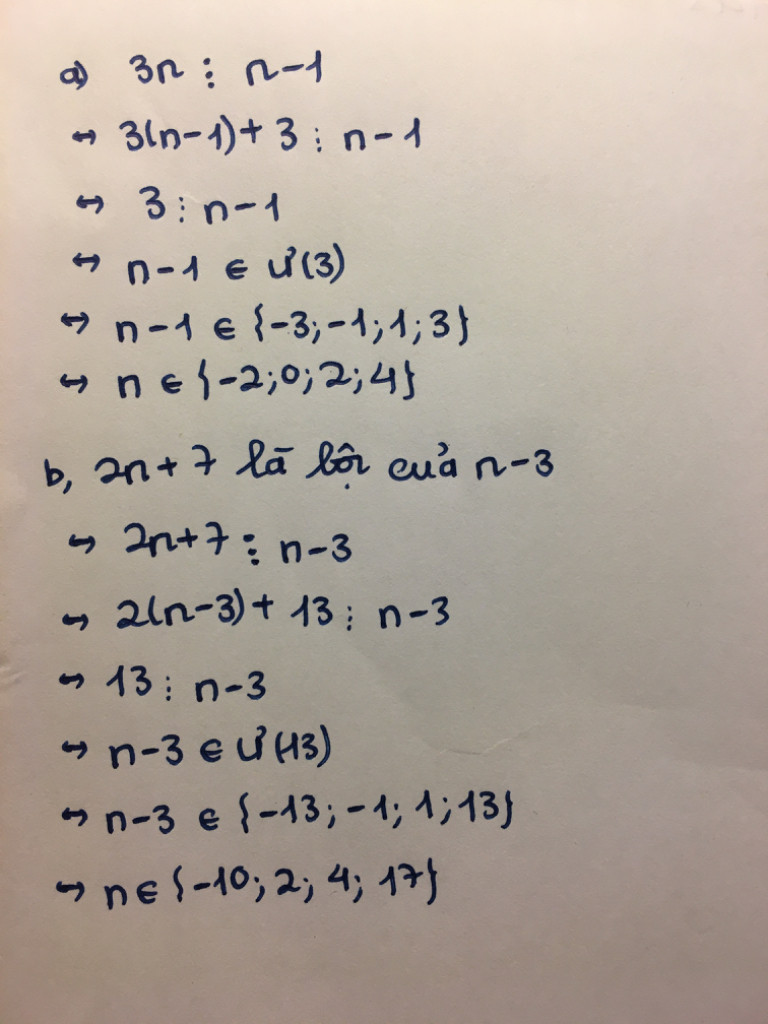 a) 3n ⋮ n-1
↔ 3(n-1)+ 3 ⋮ n-1
↔ 3 ⋮ n-1
↔ n-1 ∈ Ư(3)
↔ n-1 ∈ {-3;-1;1;3}
↔ n ∈ {-2;0;2;4}
b, 2n+7 là bội của n-3
↔ 2n+7 ⋮ n-3
↔ 2(n-3)+ 13 ⋮ n-3
↔ 13 ⋮ n-3
↔ n-3 ∈ Ư(13)
↔ n-3 ∈ {-13;-1;1;13}
↔ n ∈ {-10; 2; 4; 17}